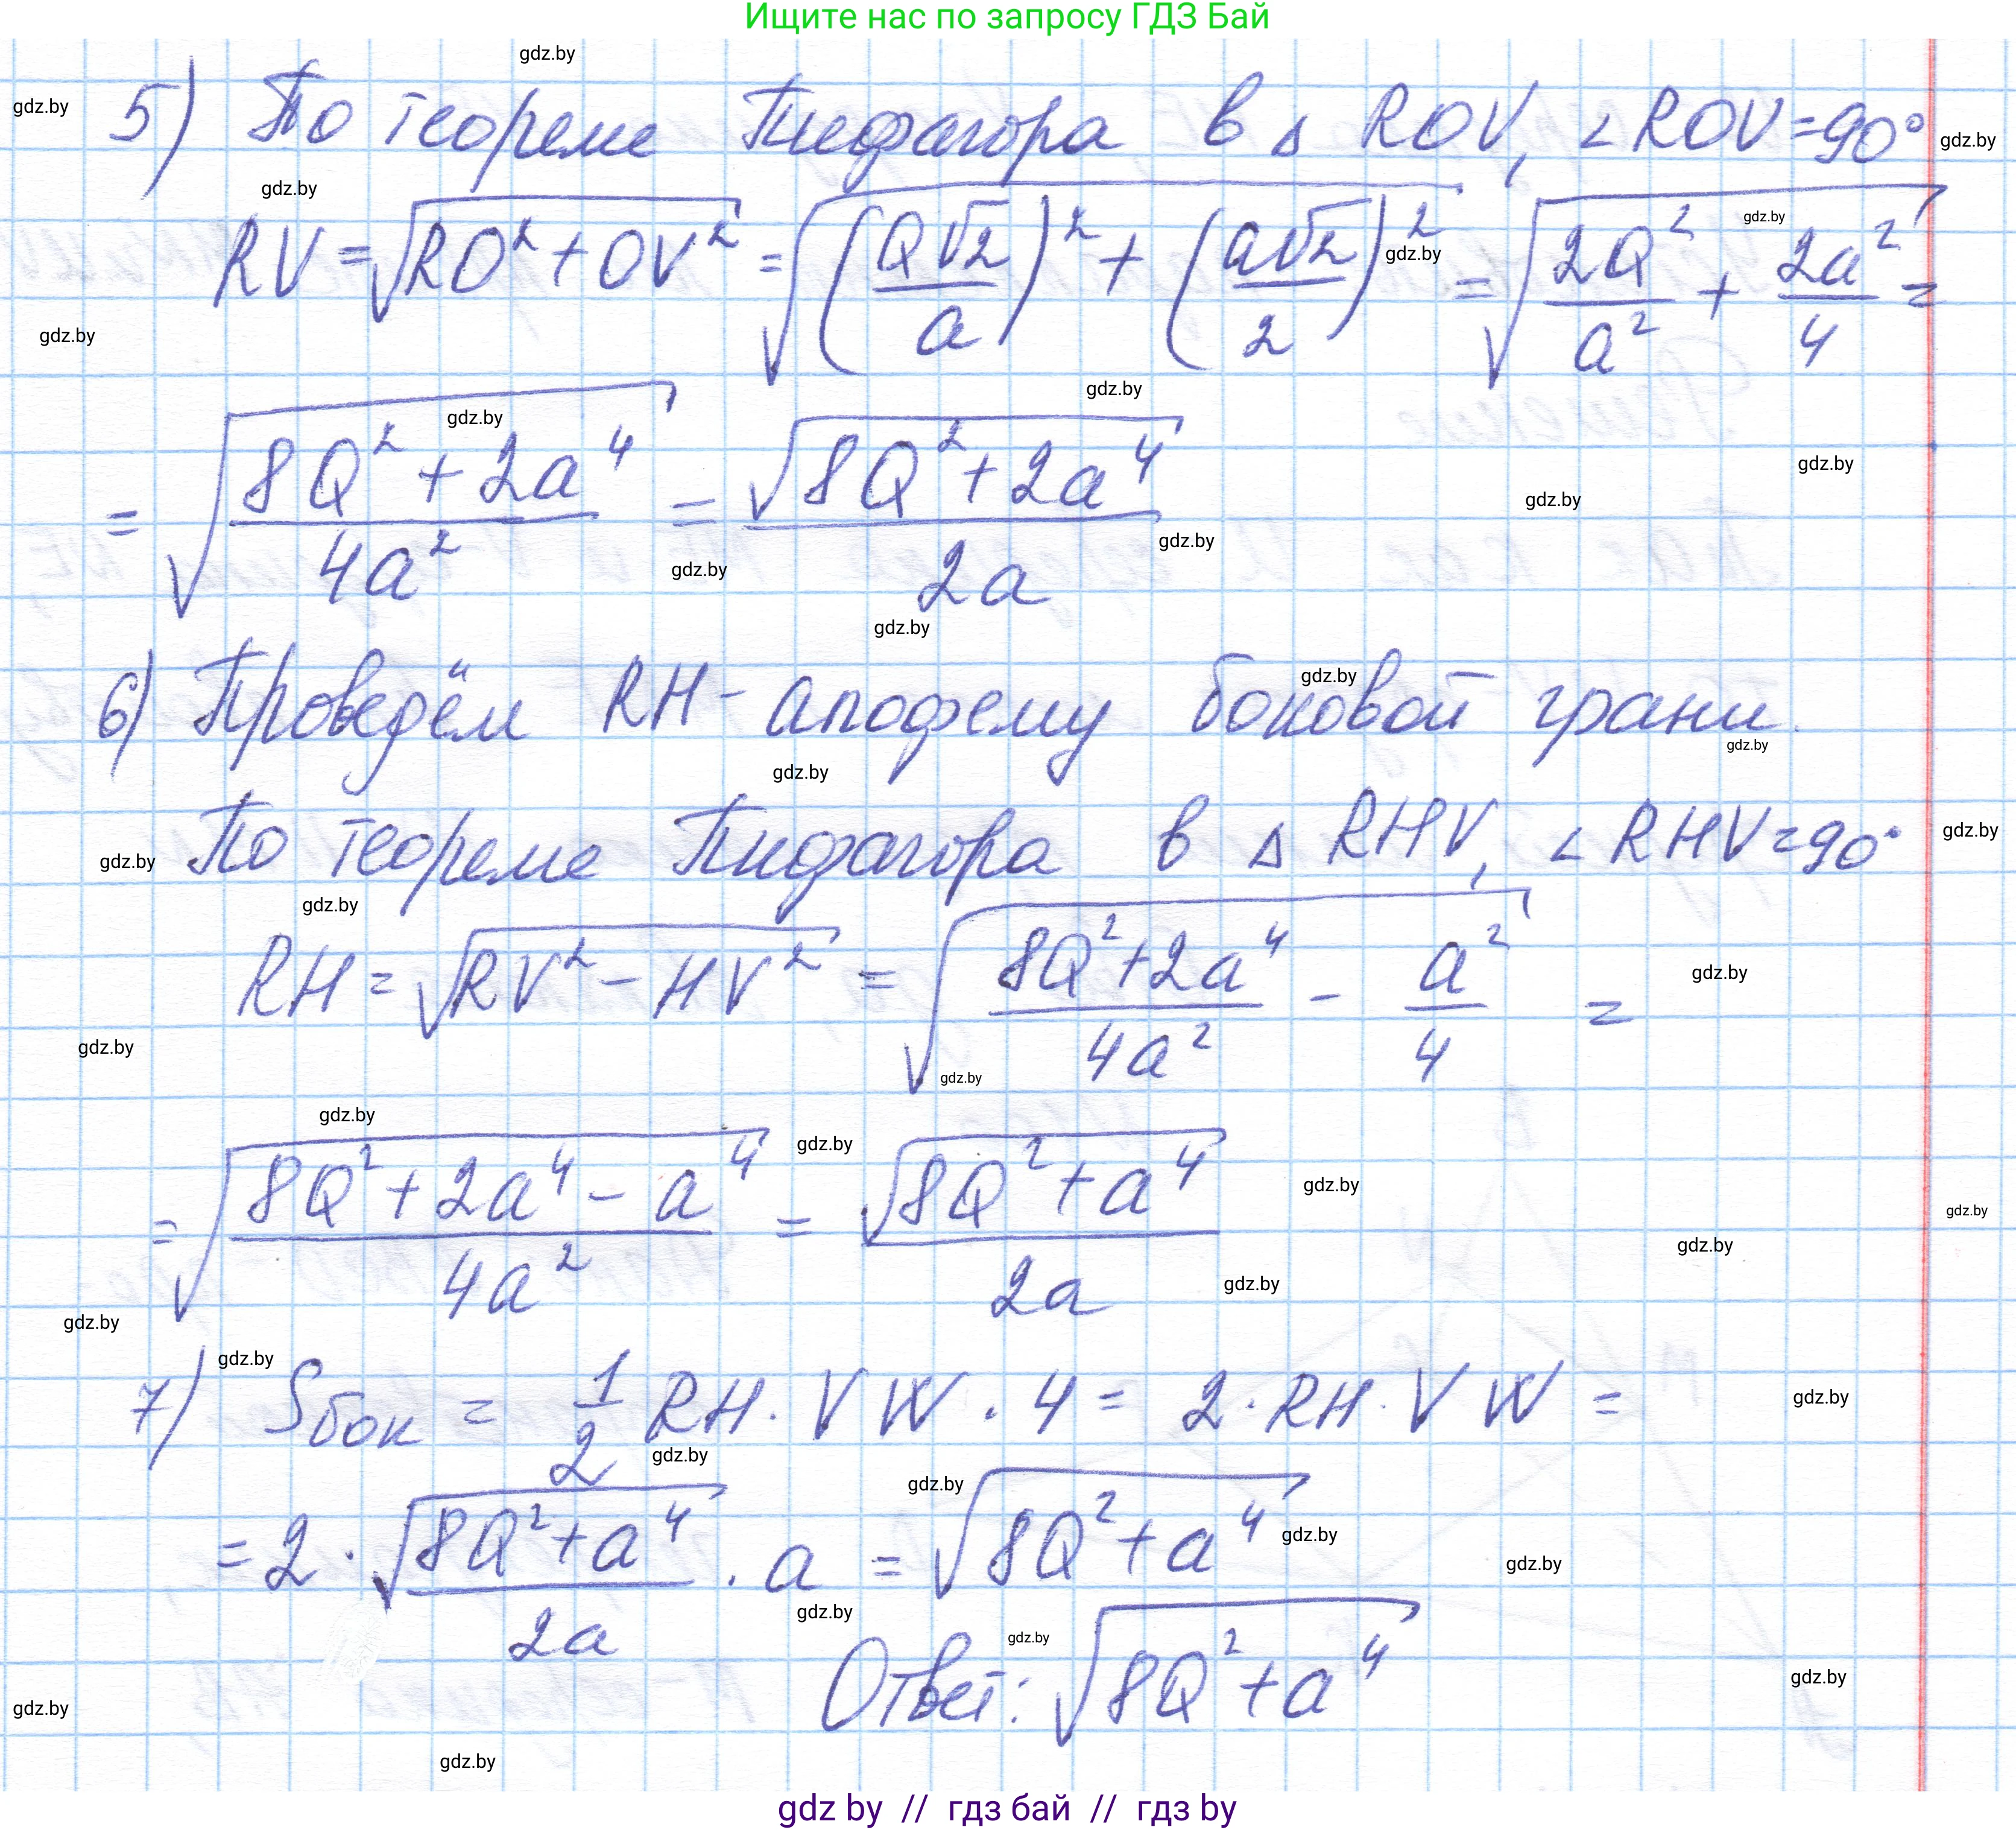 Ищите нас по запросу ГДЗ Бай
5) По теореме Пифагора в Δ ROV, ∠ROV=90°
RV = √(RO² + OV²) = √((Q√2/a)² + (a√2/2)²) = √(2Q²/a² + 2a²/4) =
= √((8Q² + 2a⁴)/4a²) = √(8Q² + 2a⁴)/2a
6) Проведём RH - апофему боковой грани.
По теореме Пифагора в Δ RHV, ∠RHV=90°
RH = √(RV² - HV²) = √((8Q²+2a⁴)/4a² - a²/4) =
= √((8Q²+2a⁴-a⁴)/4a²) = √(8Q²+a⁴)/2a
7) Sбок = 1/2 RH · VW · 4 = 2 · RH · VW =
= 2 · √(8Q²+a⁴)/2a · a = √(8Q²+a⁴)
Ответ: √(8Q²+a⁴)
gdz by // гдз бай // гдз by